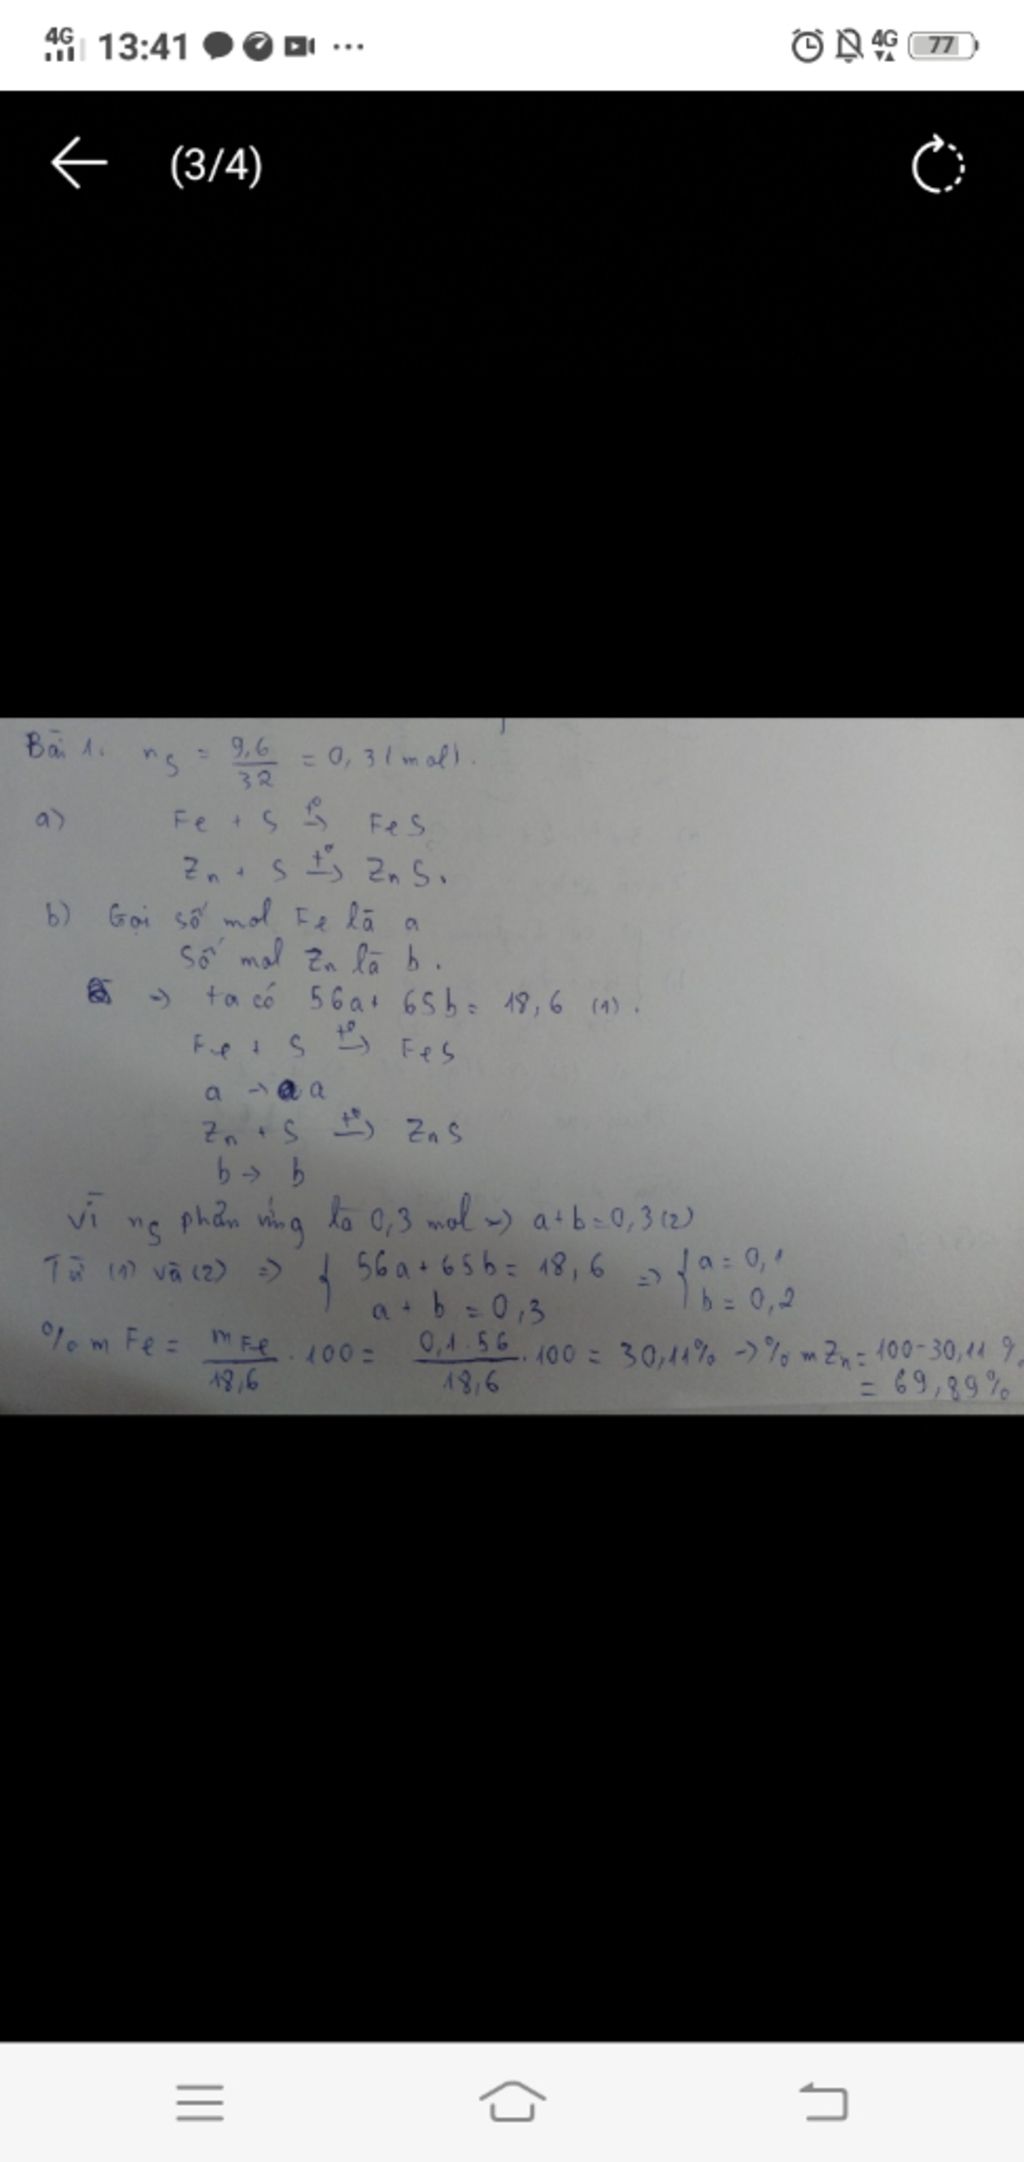 4G 13:41 ... 4G 77
(3/4)
Bài 1. nS = 9,6/32 = 0,3 (mol).
a) Fe + S t°→ FeS
Zn + S t°→ ZnS.
b) Gọi số mol Fe là a
Số mol Zn là b.
=> ta có 56a + 65b = 18,6 (1).
Fe + S t°→ FeS
a → a
Zn + S t°→ ZnS
b → b
Vì nS phản ứng là 0,3 mol => a+b=0,3 (2)
Từ (1) và (2) => { 56a + 65b = 18,6 => { a = 0,1
a + b = 0,3 b = 0,2
% m Fe = mFe/18,6 . 100 = 0,1.56/18,6 . 100 = 30,11% → % m Zn = 100-30,11 %
= 69,89%